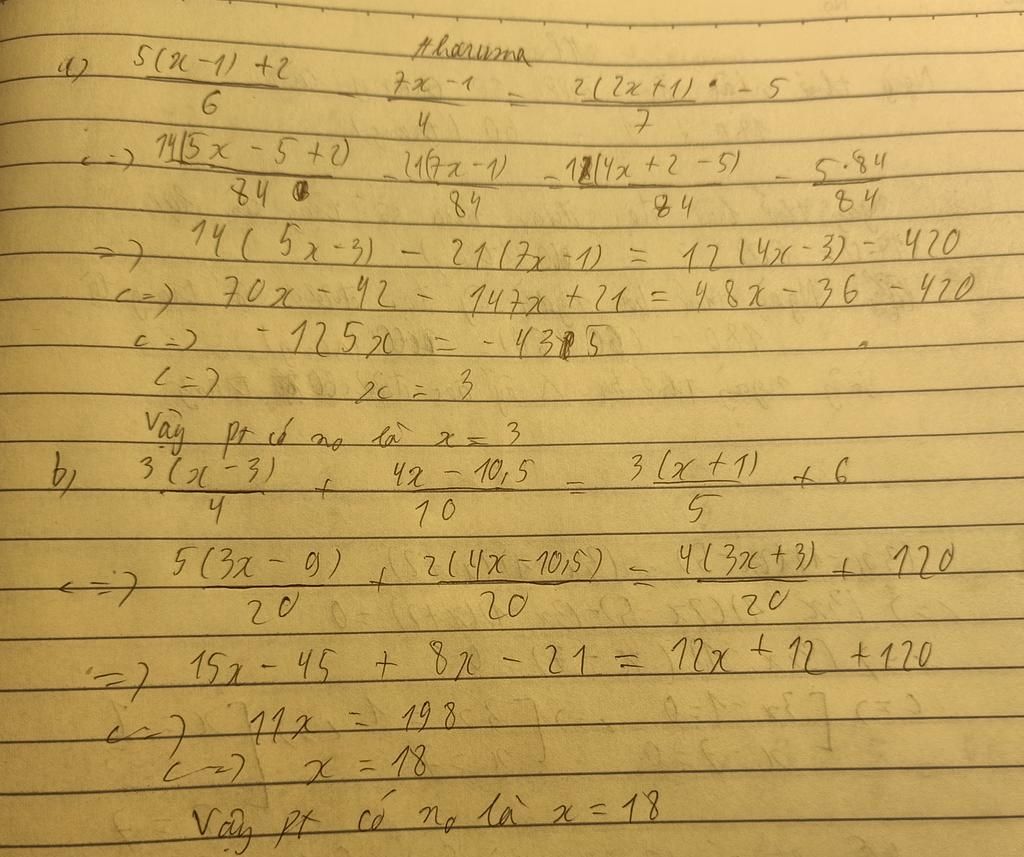 Aharuma
a) (5(x-1)+2)/6 - (7x-1)/4 = 2(2x+1)/7 - 5
<=> 14(5x-5+2)/84 - 21(7x-1)/84 = 12(4x+2-5)/84 - 5·84/84
=> 14(5x-3) - 21(7x-1) = 12(4x-3) - 420
<=> 70x-42 - 147x+21 = 48x-36-420
<=> -125x = -435
<=> x = 3
Vậy pt có no là x = 3
b) 3(x-3)/4 + (4x-10,5)/10 = 3(x+1)/5 + 6
<=> 5(3x-9)/20 + 2(4x-10,5)/20 = 4(3x+3)/20 + 120
=> 15x-45 + 8x-21 = 12x+12+120
<=> 11x = 198
<=> x = 18
Vậy pt có no là x = 18